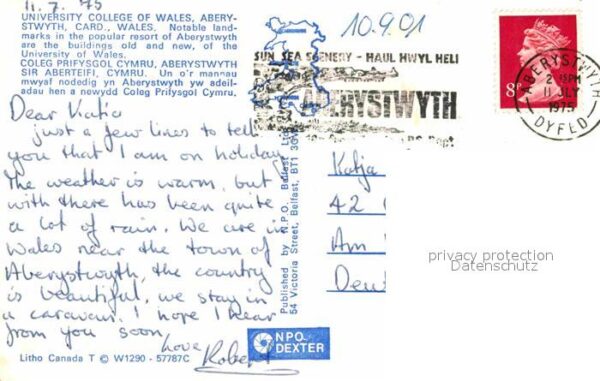 11.7.75
UNIVERSITY COLLEGE OF WALES, ABERY-
STWYTH, CARD., WALES, Notable land-
marks in the popular resort of Aberystwyth
are the buildings old and new, of the
University of Wales.
COLEG PRIFYSGOL CYMRU, ABERYSTWYTH
SIR ABERTEIFI, CYMRU. Un o'r mannau
mwyaf nodedig yn Aberystwyth yw adeil-
adau hen a newydd Coleg Prifysgol Cymru.
10.9.01
SUN SEA SCENERY - HAUL HWYL HELI
ABERYSTWYTH
8P
ABERYSTWYTH
2 PM
11 JLY
1975
DYFED
Dear Katja
just a few lines to tell
you that I am on holiday
The weather is warm, but
with there has been quite
a lot of rain. We are in
Wales near the town of
Aberystwyth, the country
is beautiful, we stay in
a caravan. I hope I hear
from you soon
Love Robert
Published by N.P.O. Belfast Ltd.
54 Victoria Street, Belfast, BT1 3GW
Katja
42
Am
Deut
privacy protection
Datenschutz
NPO
DEXTER
Litho Canada T © W1290 - 57787C